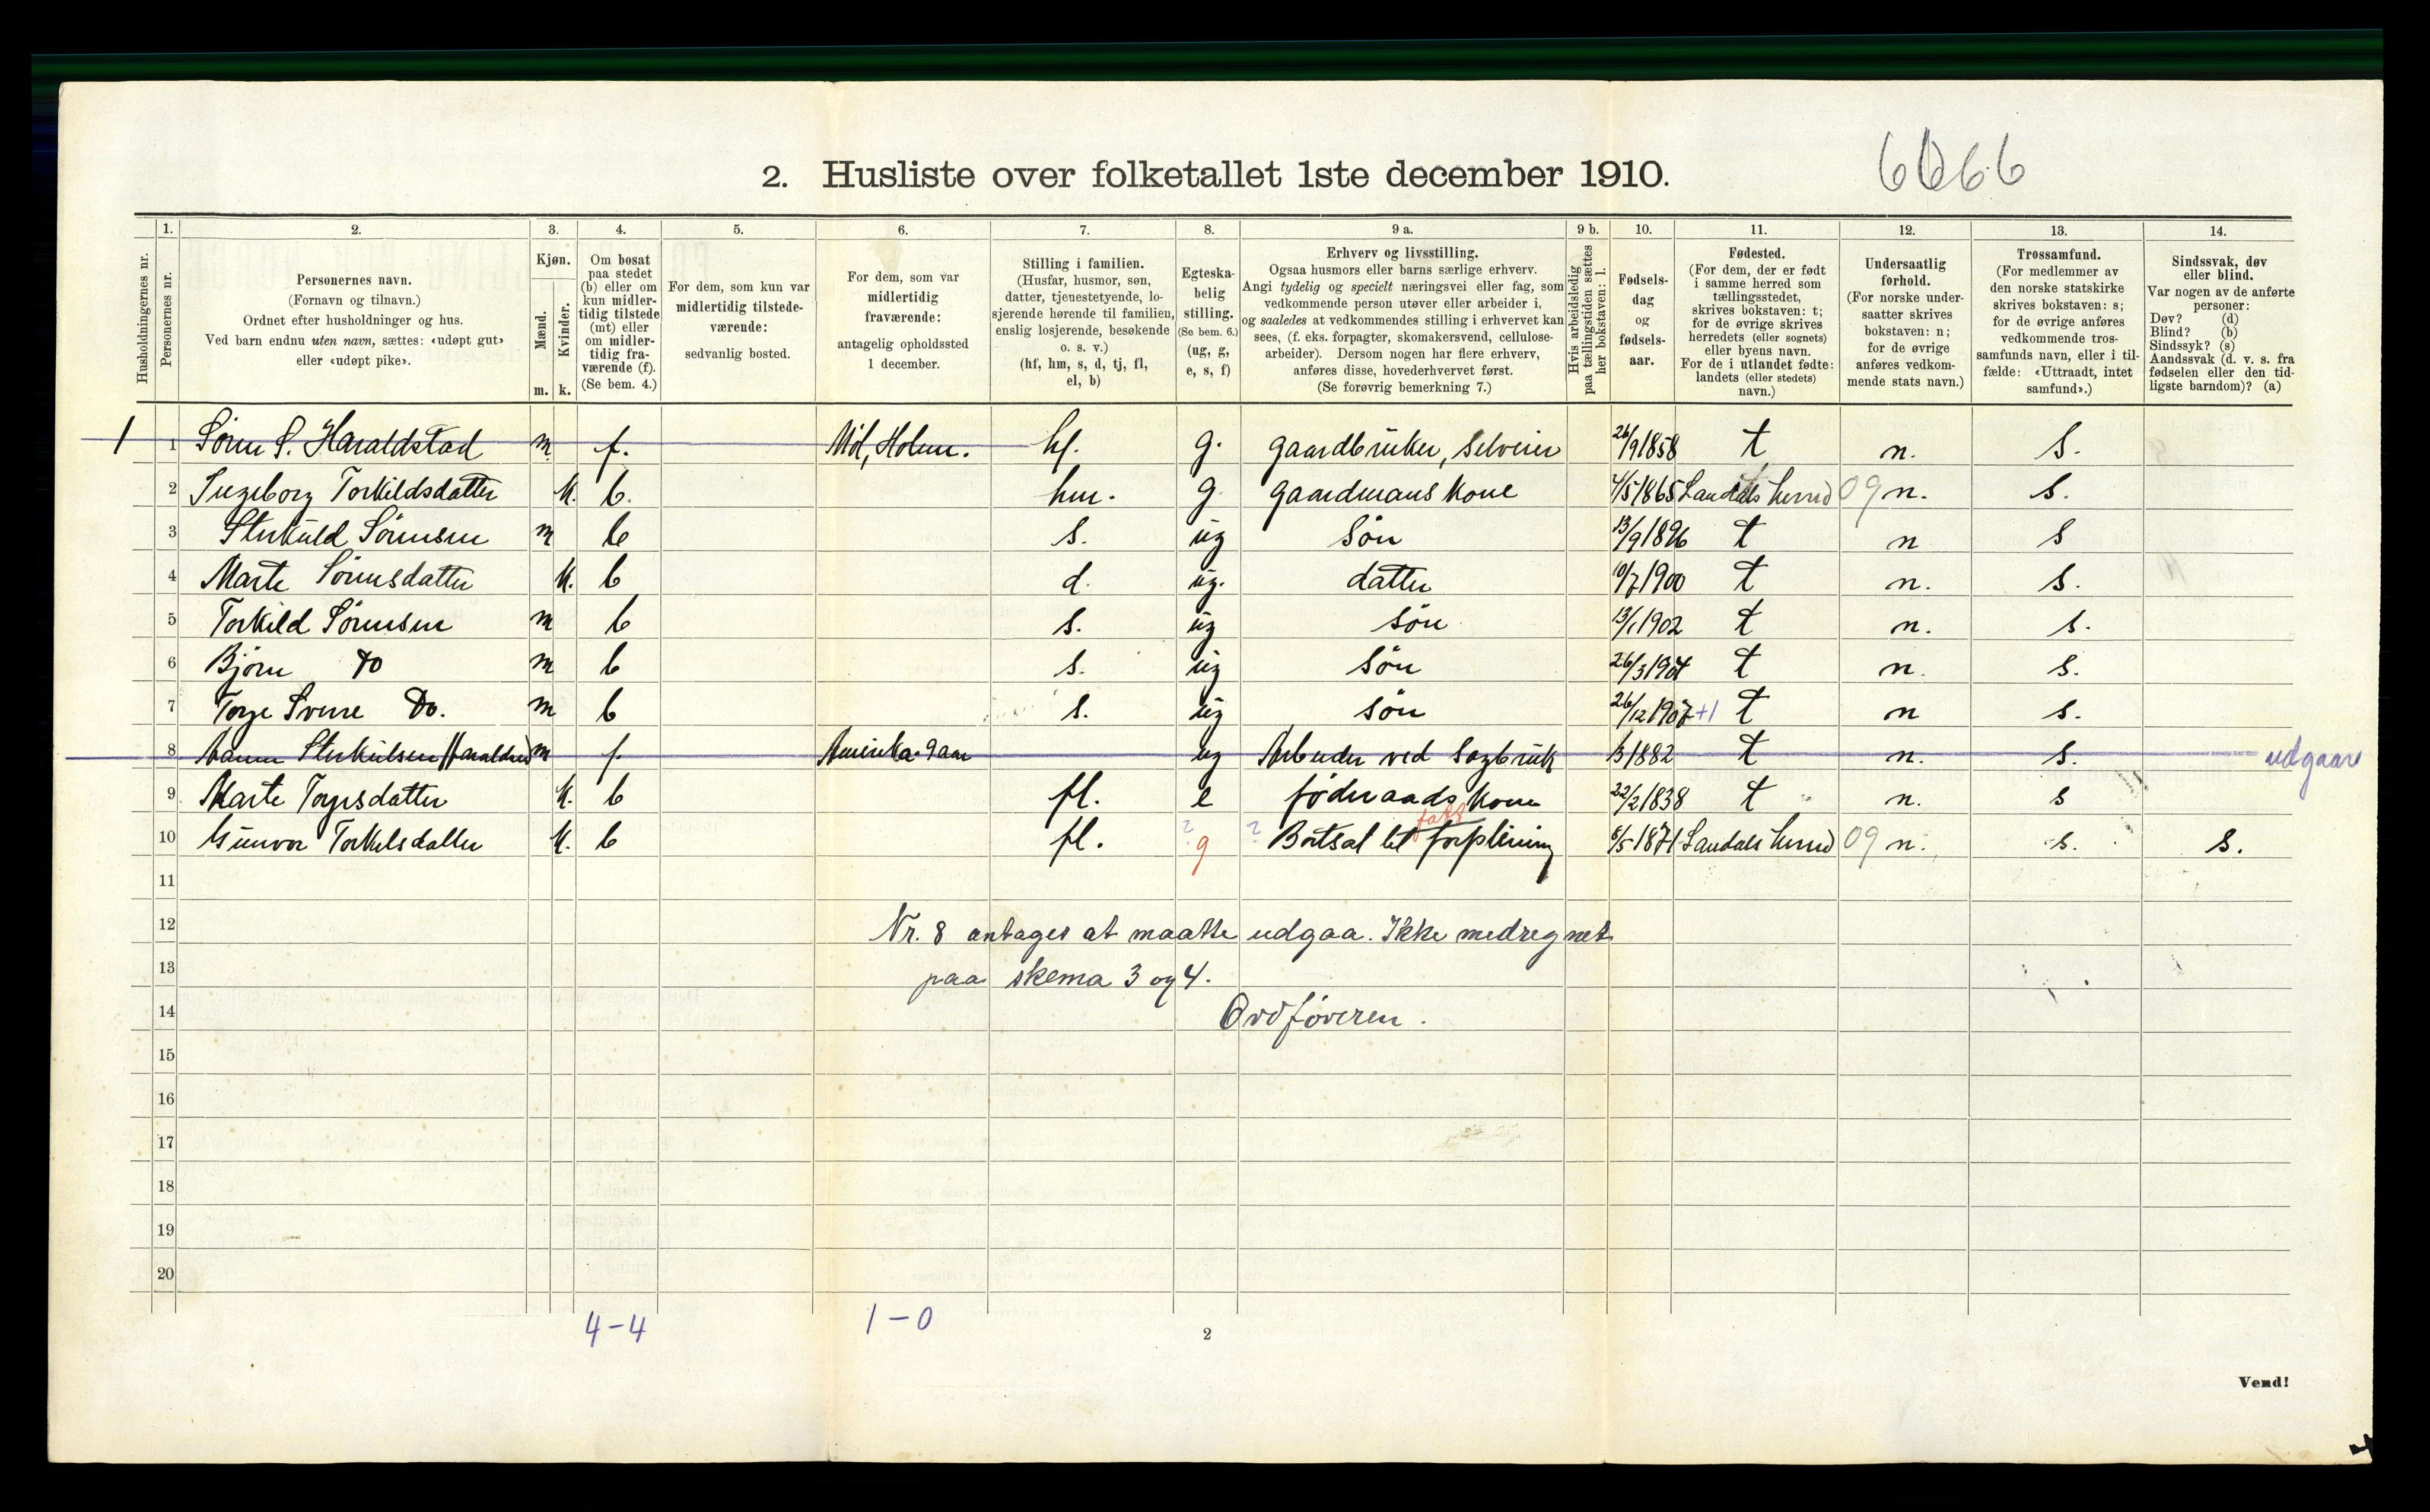 6666
2. Husliste over folketallet 1ste december 1910.
Husholdningernes nr.
1.
Personernes nr.
2.
Personernes navn.
(Fornavn og tilnavn.)
Ordnet efter husholdninger og hus.
Ved barn endnu uten navn, sættes: «udøpt gut»
eller «udøpt pike».
3.
Kjøn.
Mænd.
Kvinder.
m. k.
4.
Om bosat
paa stedet
(b) eller om
kun midler-
tidig tilstede
(mt) eller
om midler-
tidig fra-
værende (f).
(Se bem. 4.)
5.
For dem, som kun var
midlertidig tilstede-
værende:
sedvanlig bosted.
6.
For dem, som var
midlertidig
fraværende:
antagelig opholdssted
1 december.
7.
Stilling i familien.
(Husfar, husmor, søn,
datter, tjenestetyende, lo-
sjerende hørende til familien,
enslig losjerende, besøkende
o. s. v.)
(hf, hm, s, d, tj, fl,
el, b)
8.
Egteska-
belig
stilling.
(Se bem. 6.)
(ug, g,
e, s, f)
9 a.
Erhverv og livsstilling.
Ogsaa husmors eller barns særlige erhverv.
Angi tydelig og specielt næringsvei eller fag, som
vedkommende person utøver eller arbeider i,
og saaledes at vedkommendes stilling i erhvervet kan
sees, (f. eks. forpagter, skomakersvend, cellulose-
arbeider). Dersom nogen har flere erhverv,
anføres disse, hovederhvervet først.
(Se forøvrig bemerkning 7.)
9 b.
Hvis arbeidsledig
paa tællingstiden sættes
her bokstaven: l.
10.
Fødsels-
dag
og
fødsels-
aar.
11.
Fødested.
(For dem, der er født
i samme herred som
tællingsstedet,
skrives bokstaven: t;
for de øvrige skrives
herredets (eller sognets)
eller byens navn.
For de i utlandet fødte:
landets (eller stedets)
navn.)
12.
Undersaatlig
forhold.
(For norske under-
saatter skrives
bokstaven: n;
for de øvrige
anføres vedkom-
mende stats navn.)
13.
Trossamfund.
(For medlemmer av
den norske statskirke
skrives bokstaven: s;
for de øvrige anføres
vedkommende tros-
samfunds navn, eller i til-
fælde: «Uttraadt, intet
samfund».)
14.
Sindssvak, døv
eller blind.
Var nogen av de anførte
personer:
Døv? (d)
Blind? (b)
Sindssyk? (s)
Aandssvak (d. v. s. fra
fødselen eller den tid-
ligste barndom)? (a)
1 1 Søren S. Haraldstad m f. Møl, Holum. hf. g. gaardbruker, selveier 26/9 1858 t n. S.
2 Ingeborg Torkildsdatter k. b. hm. g gaardmans kone 4/5 1865 Laudals herred 09 n. s.
3 Sterkuld Sørensen m b s. ug Søn 13/9 1896 t n s
4 Marte Sørensdatter k. b d. ug. datter 10/7 1900 t n. s.
5 Torkild Sørensen m b s. ug søn 13/1 1902 t n. s.
6 Bjørn Do m b s. ug søn 26/3 1904 t n. s.
7 Torje Sverre Do. m b s. ug søn 26/12 1907 +1 t n s.
8 Sterkulsen Haraldstad m f. Amerika 9 aar ug Arbeider ved Sagbruk 1882 t n. s. udgaar
9 Marte Torjesdatter k. b fl. e føderaads kone 22/2 1838 t n. s
10 Gunvor Torkelsdatter k. b fl. ? g ? Bortsat til fatt forpleining 8/5 1871 Laudals herred 09 n. s. s.
11
12 Nr. 8 antages at maatte udgaa. Ikke medregnet
13 paa skema 3 og 4.
14 Ordføreren.
15
16
17
18
19
20
4-4 1-0
2
Vend!